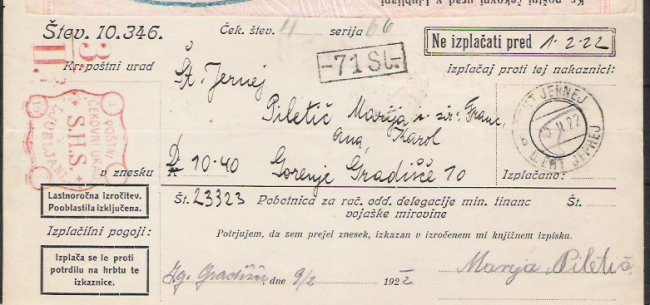 Kr. poštni čekovni urad v Ljubljani
Štev. 10.346.
Ček. štev. 4 serija 66
-71 St.
Ne izplačati pred 1·2·22
3
II.
Kr. poštni urad
Št. Jernej
Izplačaj proti tej nakaznici:
POŠTNI ČEKOVNI URAD
S.H.S
V LJUBLJANI
Piletič Marija i. sir: Franc,
Ana, Karol
ŠENT JERNEJ
II 22
ŠENT JERNEJ
v znesku D 10·40
Gorenje Gradišče 10
Izplačano:
Lastnoročna izročitev.
Pooblastila izključena.
Št. 23323 Pobotnica za rač. odd. delegacije min. financ Št.
vojaške mirovine
Izplačilni pogoji:
Potrjujem, da sem prejel znesek, izkazan v izročenem mi knjižnem izpisku.
Izplača se le proti
potrdilu na hrbtu te
izkaznice.
Gradišče, dne 9/2 1922
Marija Piletič